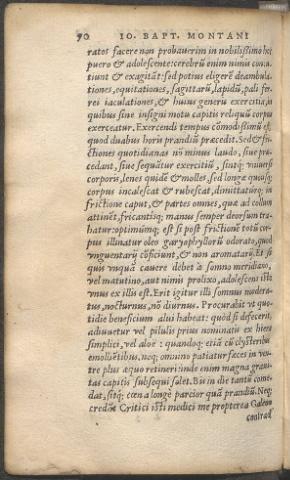 70 IO. BAPT. MONTANI
rates facere non probauerim in nobilissimo hoc
puero & adolescente: cerebrū enim nimis concu
tiunt & exagitāt: sed potius eligerē deambula
tiones, equitationes, sagittarū, lapidū, pali fer
rei iaculationes, & huius generis exercitia, in
quibus sine insigni motu capitis reliquū corpus
exerceatur. Exercendi tempus cōmodissimū est,
quod duabus horis prandiū præcedit. Sed & fri-
ctiones quotidianas nō minus laudo, siue præ-
cedant, siue sequātur exercitiū, sintq; vniuersi
corporis, lenes quidē & molles, sed longæ quousq;
corpus incalescat & rubescat, dimittaturq; in
frictione caput, & partes omnes, quæ ad collum
attinēt, fricantisq; manus semper deorsum tra-
hatur: optimūmq; est si post frictionē totū cor-
pus illinatur oleo garyophyllorū odorato, quod
vnguentarij cōficiunt, & non aromatarij. Et si
quis vnquā cauere debet à somno meridiano,
vel matutino, aut nimis prolixo, adolescens iste
vnus ex illis est. Erit igitur illi somnus modera-
tus, nocturnus, nō diurnus. Procurābit vt quo-
tidie beneficium alui habeat: quòd si defecerit,
adiuuetur vel pilulis prius nominatis ex hiera
simplici, vel aloë: quandoq; etiā cū clysteribus
emollientibus. neq; omnino patiatur fæces in ven-
tre plus æquo retineri: inde enim magna graui-
tas capitis subsequi solet. Bis in die tantū come-
dat, sitq; cœna longè parcior quā prandiū. Neq;
credās Critici isti medici me propterea Galeno
contrad